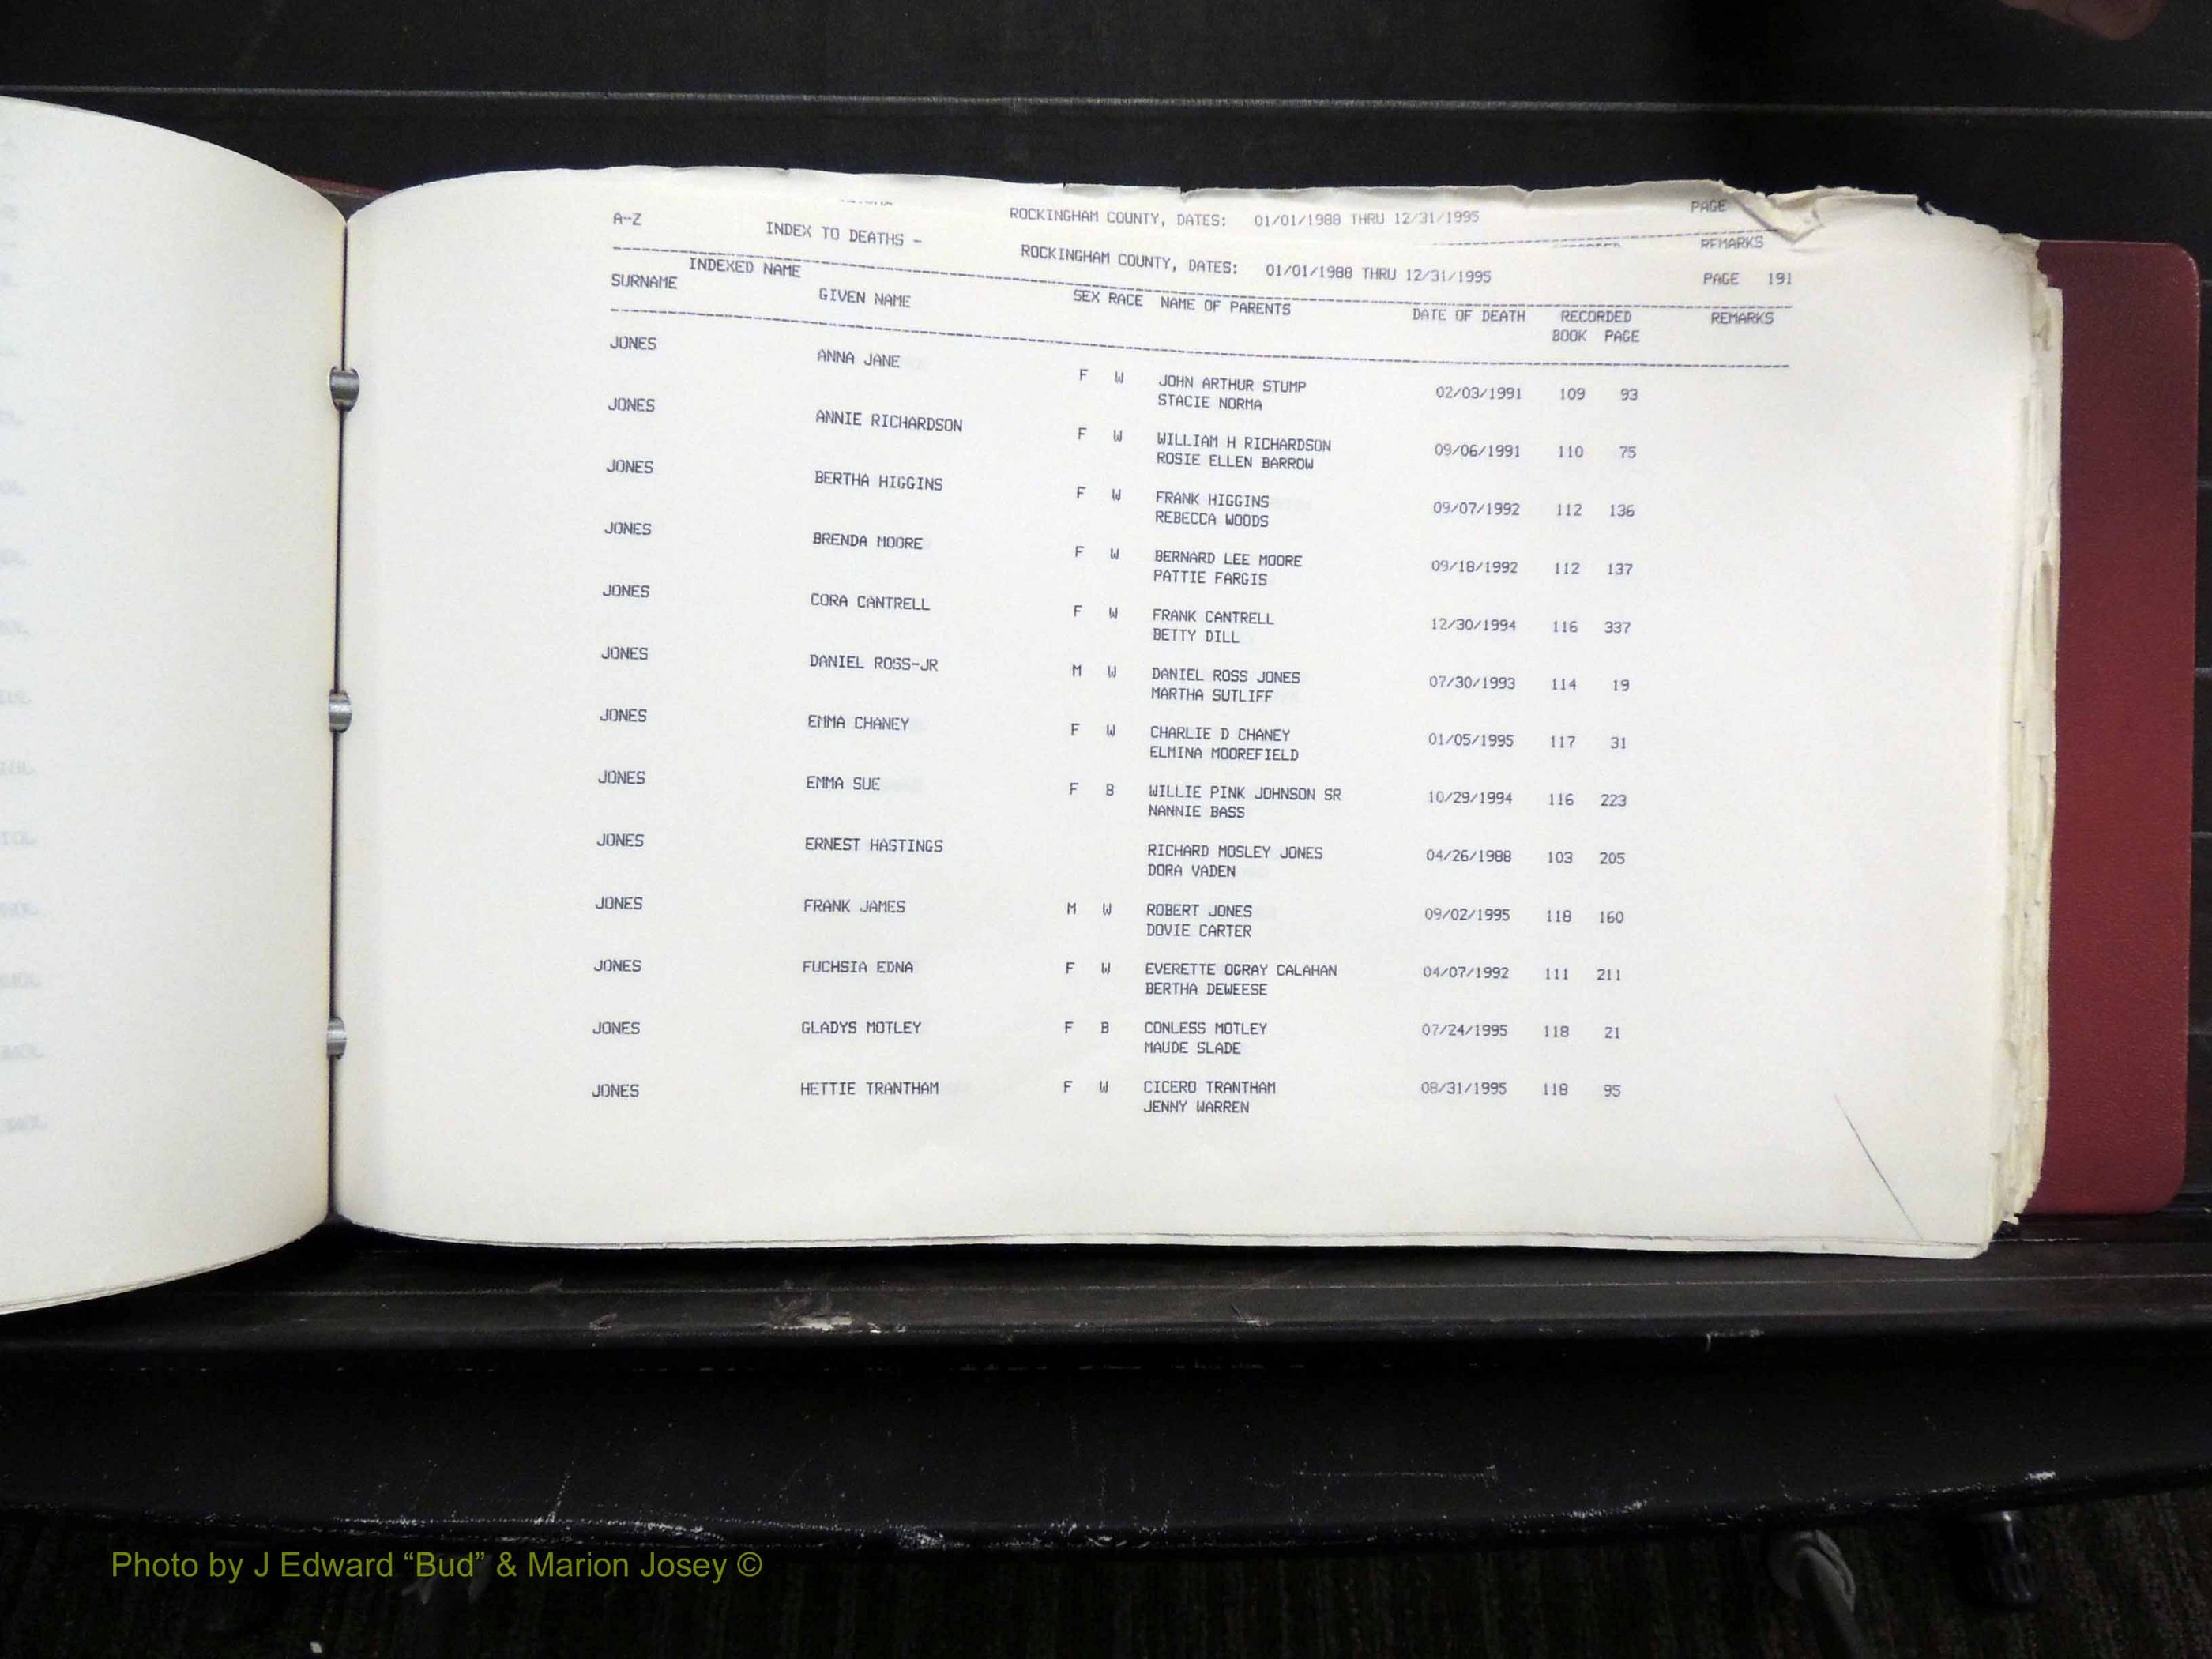 ROCKINGHAM COUNTY, DATES: 01/01/1988 THRU 12/31/1995 PAGE
REMARKS
A-Z INDEX TO DEATHS - ROCKINGHAM COUNTY, DATES: 01/01/1988 THRU 12/31/1995 PAGE 191
INDEXED NAME
SURNAME GIVEN NAME SEX RACE NAME OF PARENTS DATE OF DEATH RECORDED REMARKS
BOOK PAGE
JONES ANNA JANE F W JOHN ARTHUR STUMP 02/03/1991 109 93
STACIE NORMA
JONES ANNIE RICHARDSON F W WILLIAM H RICHARDSON 09/06/1991 110 75
ROSIE ELLEN BARROW
JONES BERTHA HIGGINS F W FRANK HIGGINS 09/07/1992 112 136
REBECCA WOODS
JONES BRENDA MOORE F W BERNARD LEE MOORE 09/18/1992 112 137
PATTIE FARGIS
JONES CORA CANTRELL F W FRANK CANTRELL 12/30/1994 116 337
BETTY DILL
JONES DANIEL ROSS-JR M W DANIEL ROSS JONES 07/30/1993 114 19
MARTHA SUTLIFF
JONES EMMA CHANEY F W CHARLIE D CHANEY 01/05/1995 117 31
ELMINA MOOREFIELD
JONES EMMA SUE F B WILLIE PINK JOHNSON SR 10/29/1994 116 223
NANNIE BASS
JONES ERNEST HASTINGS RICHARD MOSLEY JONES 04/26/1988 103 205
DORA VADEN
JONES FRANK JAMES M W ROBERT JONES 09/02/1995 118 160
DOVIE CARTER
JONES FUCHSIA EDNA F W EVERETTE OGRAY CALAHAN 04/07/1992 111 211
BERTHA DEWEESE
JONES GLADYS MOTLEY F B CONLESS MOTLEY 07/24/1995 118 21
MAUDE SLADE
JONES HETTIE TRANTHAM F W CICERO TRANTHAM 08/31/1995 118 95
JENNY WARREN
Photo by J Edward “Bud” & Marion Josey ©